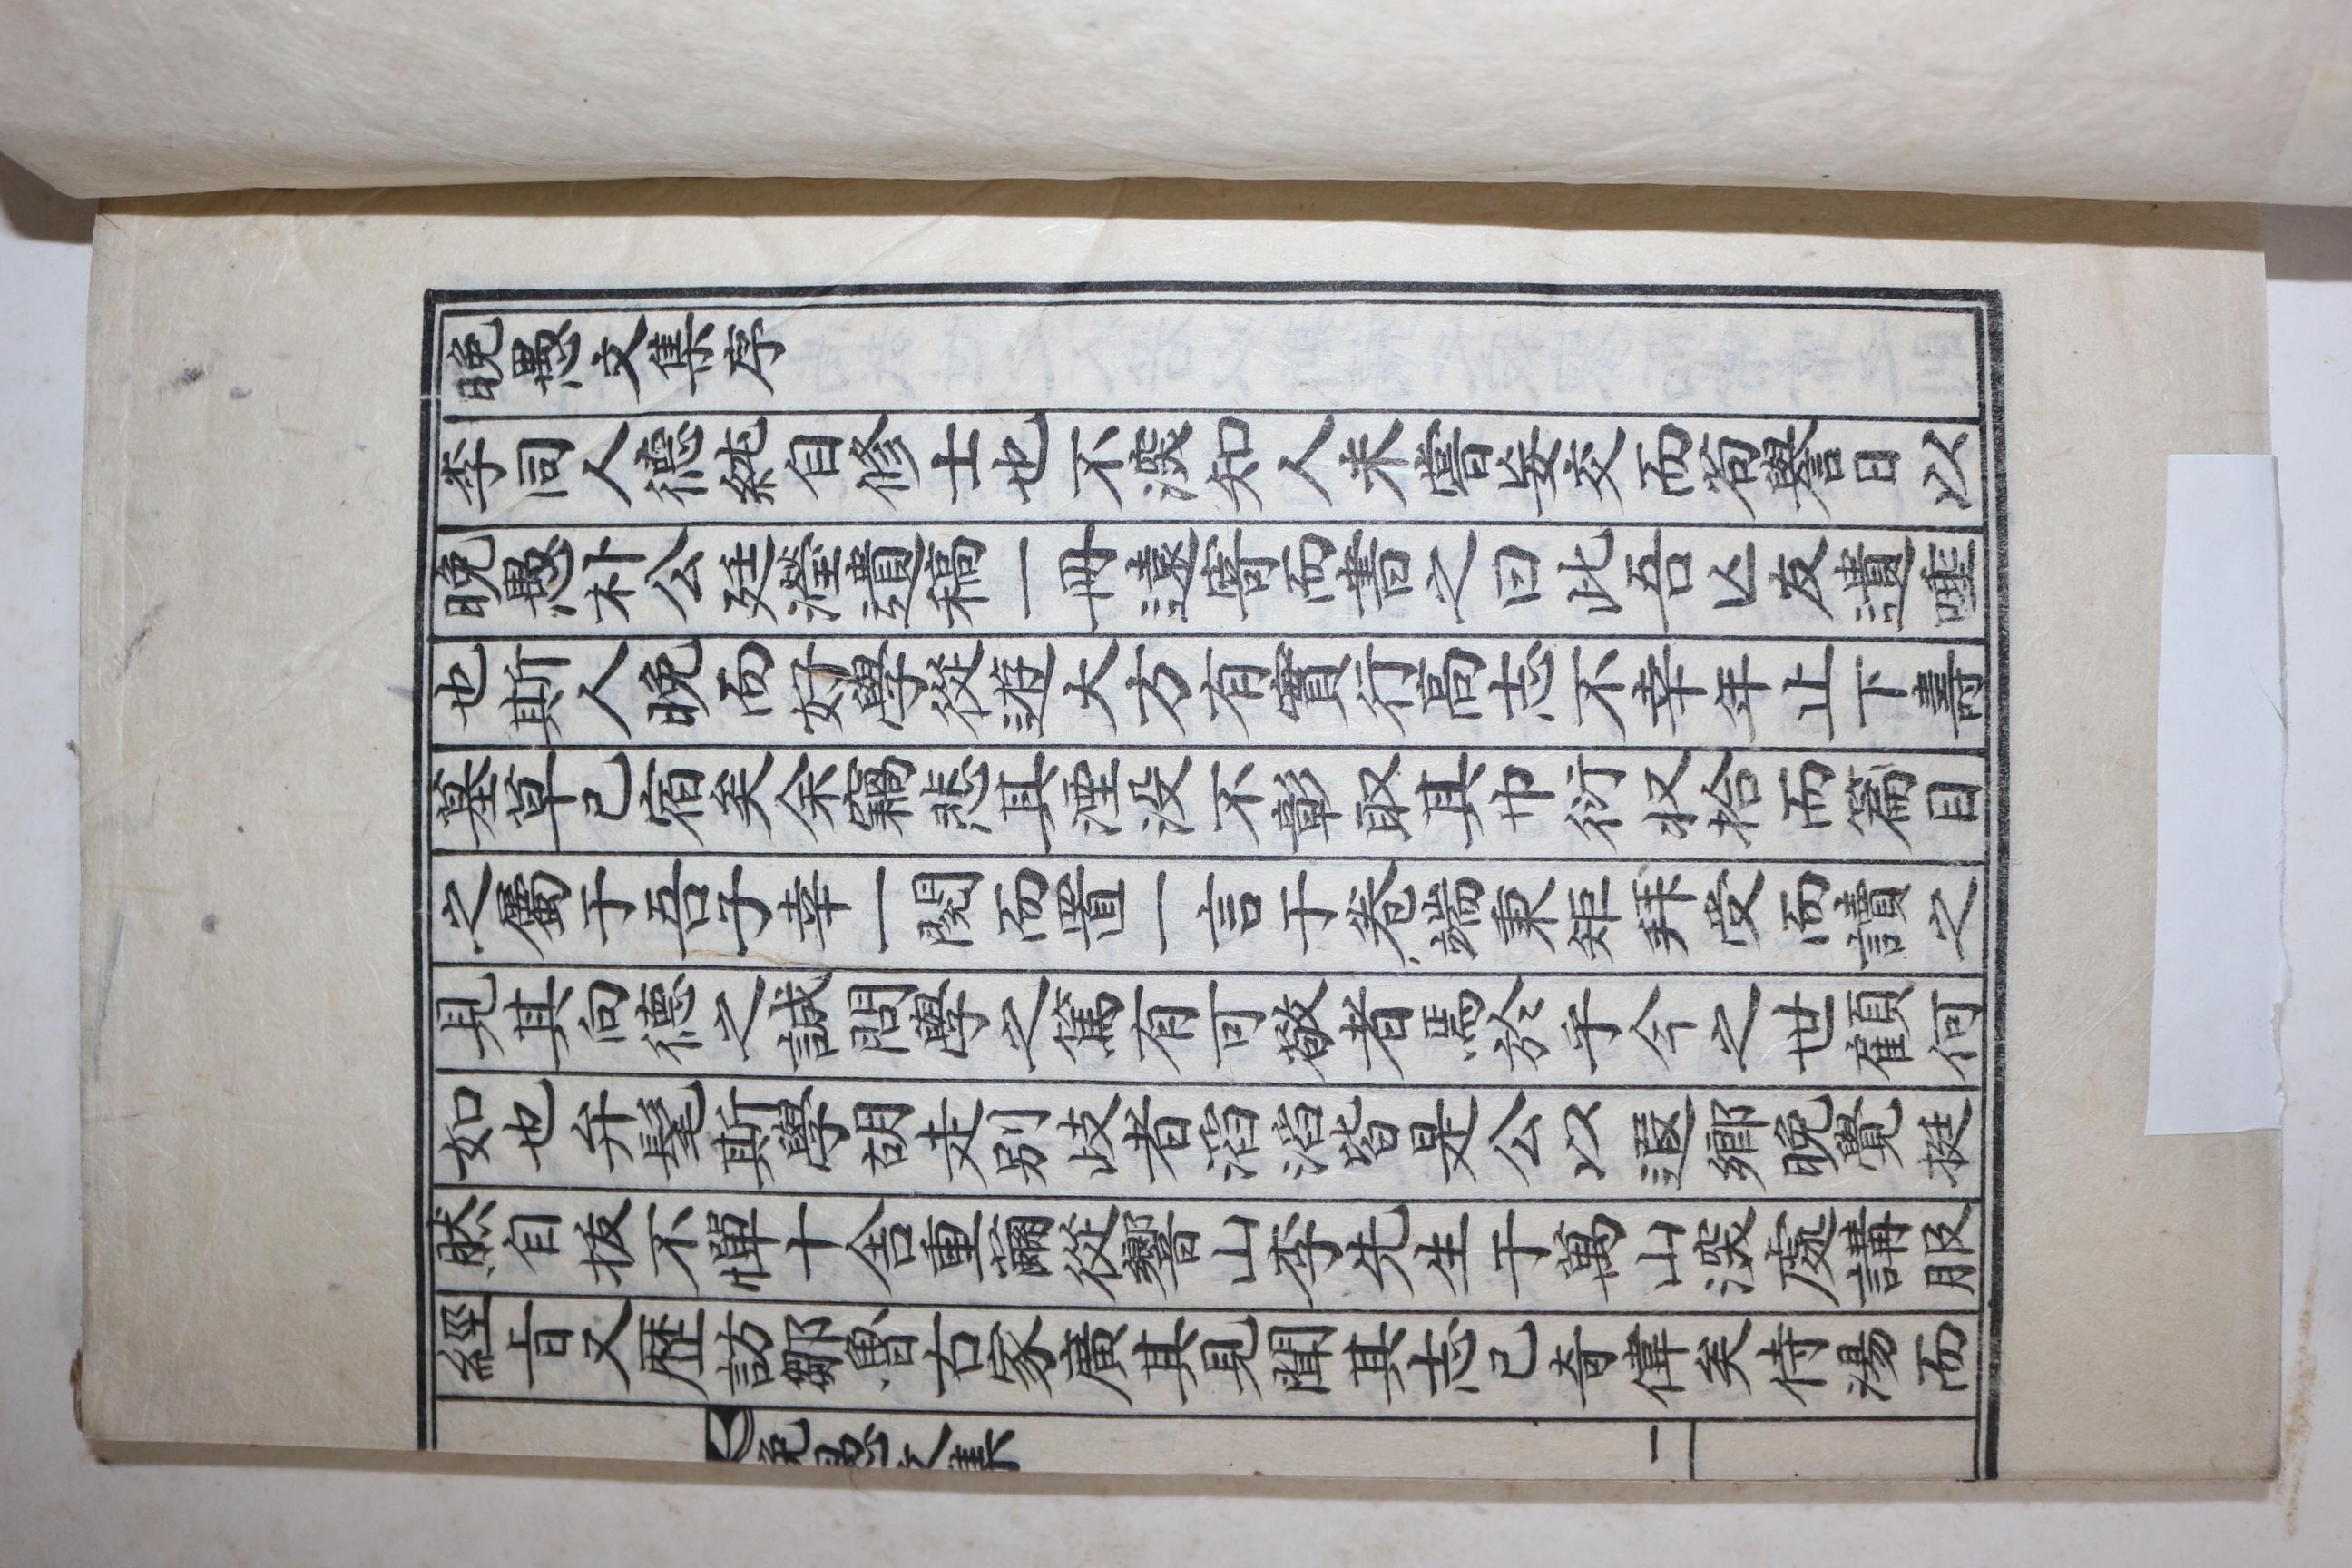 晚愚文集序
李同人德純自修士也不深知人未嘗妄交而苟譽言日以
晚愚朴公廷瀅遺稿一冊遠寄而書之曰此吾亡友遺唾
也斯人晚而好學從遊大方有實行高志不幸年止下壽
墓草已宿矣余竊悲其湮没不彰取其巾衍收拾而篇目
之屬于吾子幸一閱而置一言于卷端秉矩拜受而讀之
見其向德之誠問學之篤有可敬者焉於乎今之世顧何
如也弁髦斯學胡走別歧者滔滔皆是公以遐鄉晚覺挺
然自拔不憚十舍重繭從響山李先生于萬山深處講服
經旨又歷訪鄒魯古家廣其見聞其志已奇偉矣侍湯而
晚愚文集 一